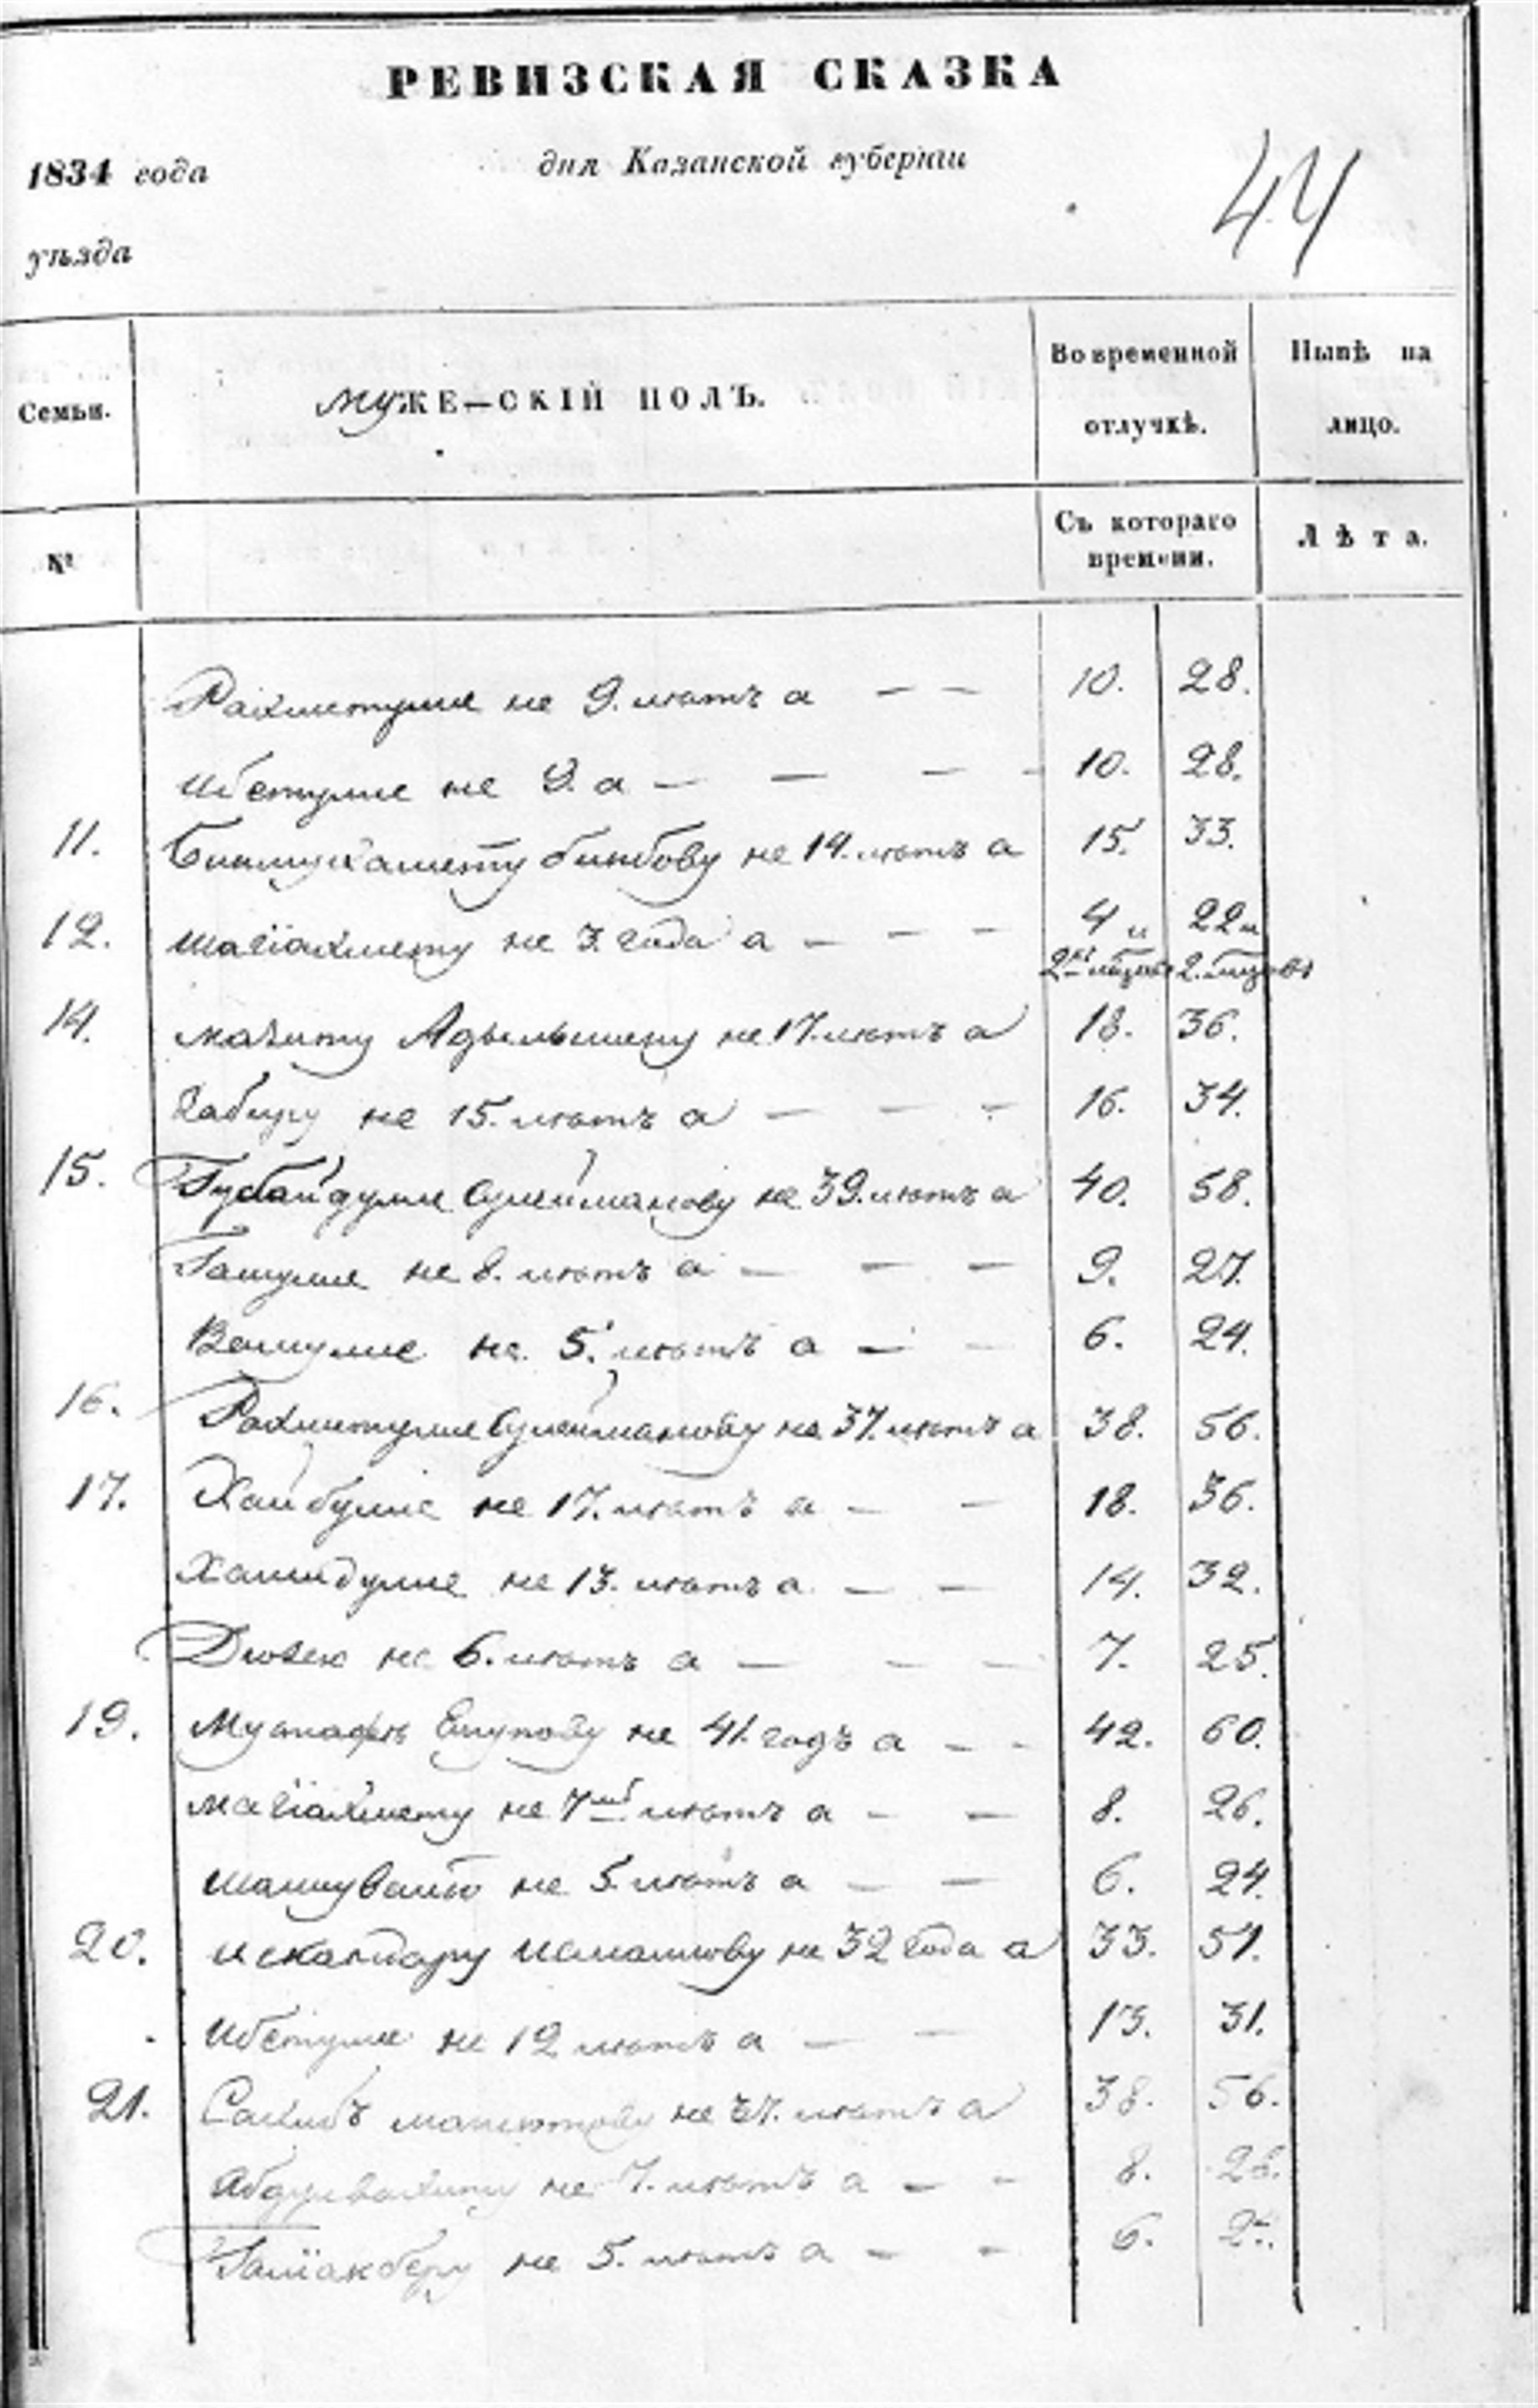 РЕВИЗСКАЯ СКАЗКА
1834 года
дня Казанской губерніи
44
уѣзда
Семьи.
МУЖЕ—СКІЙ ПОЛЪ.
Во временной отлучкѣ.
Нынѣ на лицо.
№
Съ котораго времени.
Лѣта.
Рахметулле не 9. лѣтъ а — — 10. 28.
Ибетулле не 9. а — — — — 10. 28.
11. Бикмухамету не 14. лѣтъ а 15. 33.
12. Шагіахмету не 3. года а — — — 4 и 22 и
2хъ мѣсяцовъ 2. мѣсяцовъ
14. Мазиту Адельшину не 17. лѣтъ а 18. 36.
Кабиру не 15. лѣтъ а — — — 16. 34.
15. Губайдулле Сулейманову не 39. лѣтъ а 40. 58.
не 8. лѣтъ а — — — 9. 27.
Велиулле не 5. лѣтъ а — — 6. 24.
16. Рахметулле Сулейманову не 37. лѣтъ а 38. 56.
17. Хайбулле не 17. лѣтъ а — — 18. 36.
Хамидулле не 13. лѣтъ а — — 14. 32.
не 6. лѣтъ а — — — 7. 25.
19. Мустафѣ Юнусову не 41. годъ а — — 42. 60.
Магіахмету не 7ми лѣтъ а — — 8. 26.
не 5. лѣтъ а — — 6. 24.
20. Искандару Исмаилову не 32 года а 33. 51.
Ибетулле не 12 лѣтъ а — — 13. 31.
21. не 37. лѣтъ а 38. 56.
не 7. лѣтъ а — — 8. 26.
Галіакберу не 5. лѣтъ а — — 6.